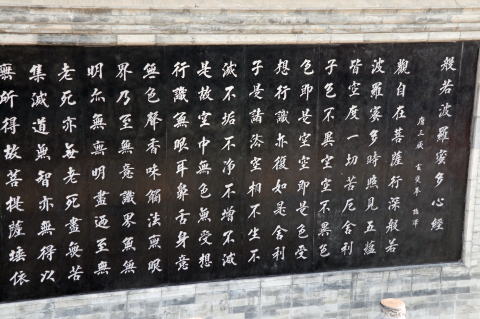 般若波羅蜜多心經
唐三藏玄奘奉詔譯
觀自在菩薩行深般若
波羅蜜多時照見五蘊
皆空度一切苦厄舍利
子色不異空空不異色
色即是空空即是色受
想行識亦復如是舍利
子是諸法空相不生不
滅不垢不淨不增不減
是故空中無色無受想
行識無眼耳鼻舌身意
無色聲香味觸法無眼
界乃至無意識界無無
明亦無無明盡迺至無
老死亦無老死盡無苦
集滅道無智亦無得以
無所得故菩提薩埵依